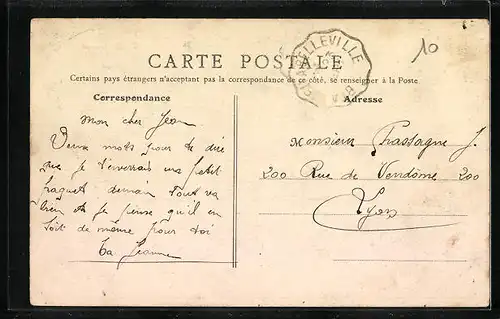 10
CHAPELLEVILLE
CARTE POSTALE
Certains pays étrangers n'acceptant pas la correspondance de ce côté, se renseigner à la Poste
Correspondance
Adresse
Mon cher Jean
Deux mots pour te dire
que je t'enverrais un petit
paquet demain Tout va
bien et je pense qu'il en
soit de même pour toi
Ta Jeanne
Monsieur Chassagne J.
200 Rue de Vendôme 200
Lyon